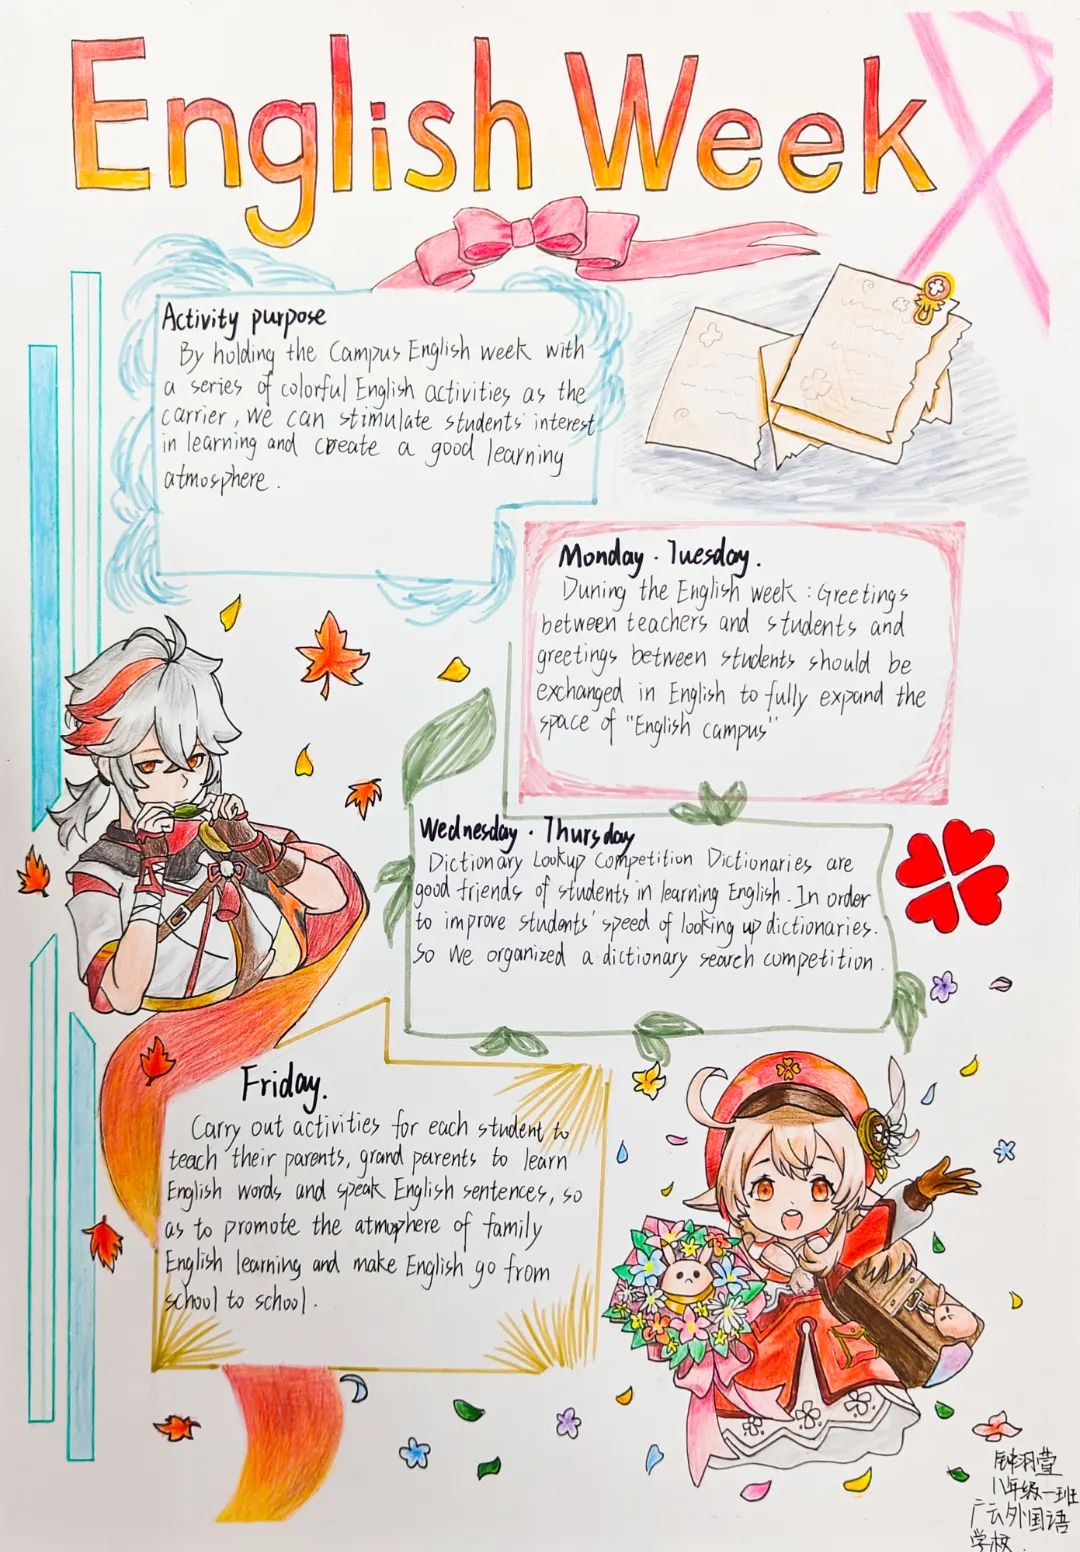 English Week
Activity purpose
By holding the Campus English week with
a series of colorful English activities as the
carrier, we can stimulate students' interest
in learning and create a good learning
atmosphere.
Monday · Tuesday.
Duning the English week : Greetings
between teachers and students and
greetings between students should be
exchanged in English to fully expand the
space of "English campus"
Wednesday · Thursday
Dictionary Lookup Competition Dictionaries are
good friends of students in learning English. In order
to improve students' speed of looking up dictionaries.
So we organized a dictionary search competition.
Friday.
Carry out activities for each student to
teach their parents, grand parents to learn
English words and speak English sentences, so
as to promote the atmophere of family
English learning and make English go from
school to school.
钟羽萱
八年级一班
广云外国语
学校.